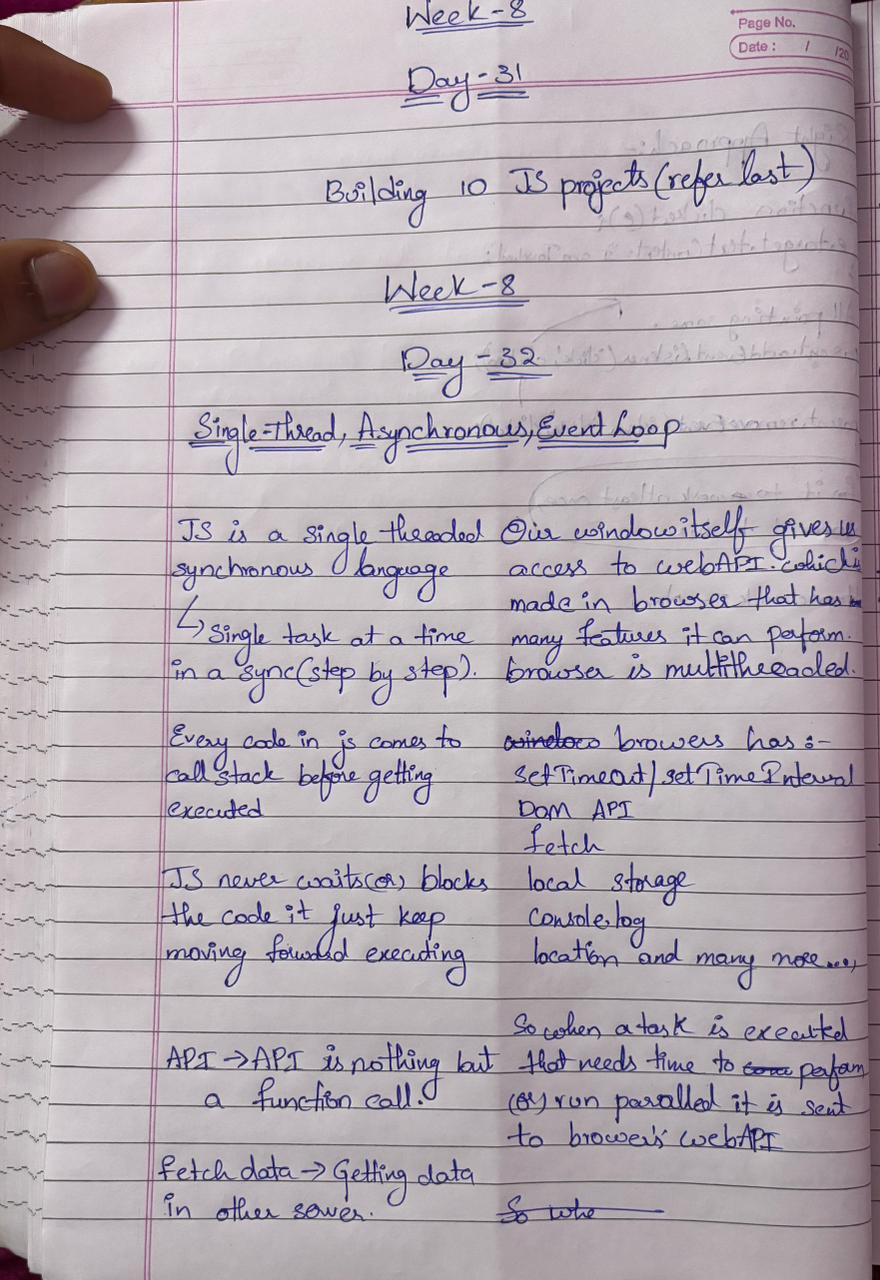 Week-8
Page No.
Date : / /20
Day-31
Building 10 JS projects (refer last)
Week-8
Day-32
Single-Thread, Asynchronous, Event Loop
JS is a single threaded
synchronous language
↳ Single task at a time
in a sync(step by step).
Every code in js comes to
call stack before getting
executed
JS never waits (or) blocks
the code it just keep
moving forward executing
API → API is nothing but
a function call.
fetch data → Getting data
in other server.
Our window itself gives us
access to webAPI. which is
made in browser that has
many features it can perform.
browser is multitheaded.
window browers has :-
setTimeout/setTimeInterval
DOM API
fetch
local storage
console.log
location and many more...,
So when a task is executed
that needs time to perfom
(or) run paralled it is sent
to brower's webAPI
So whe